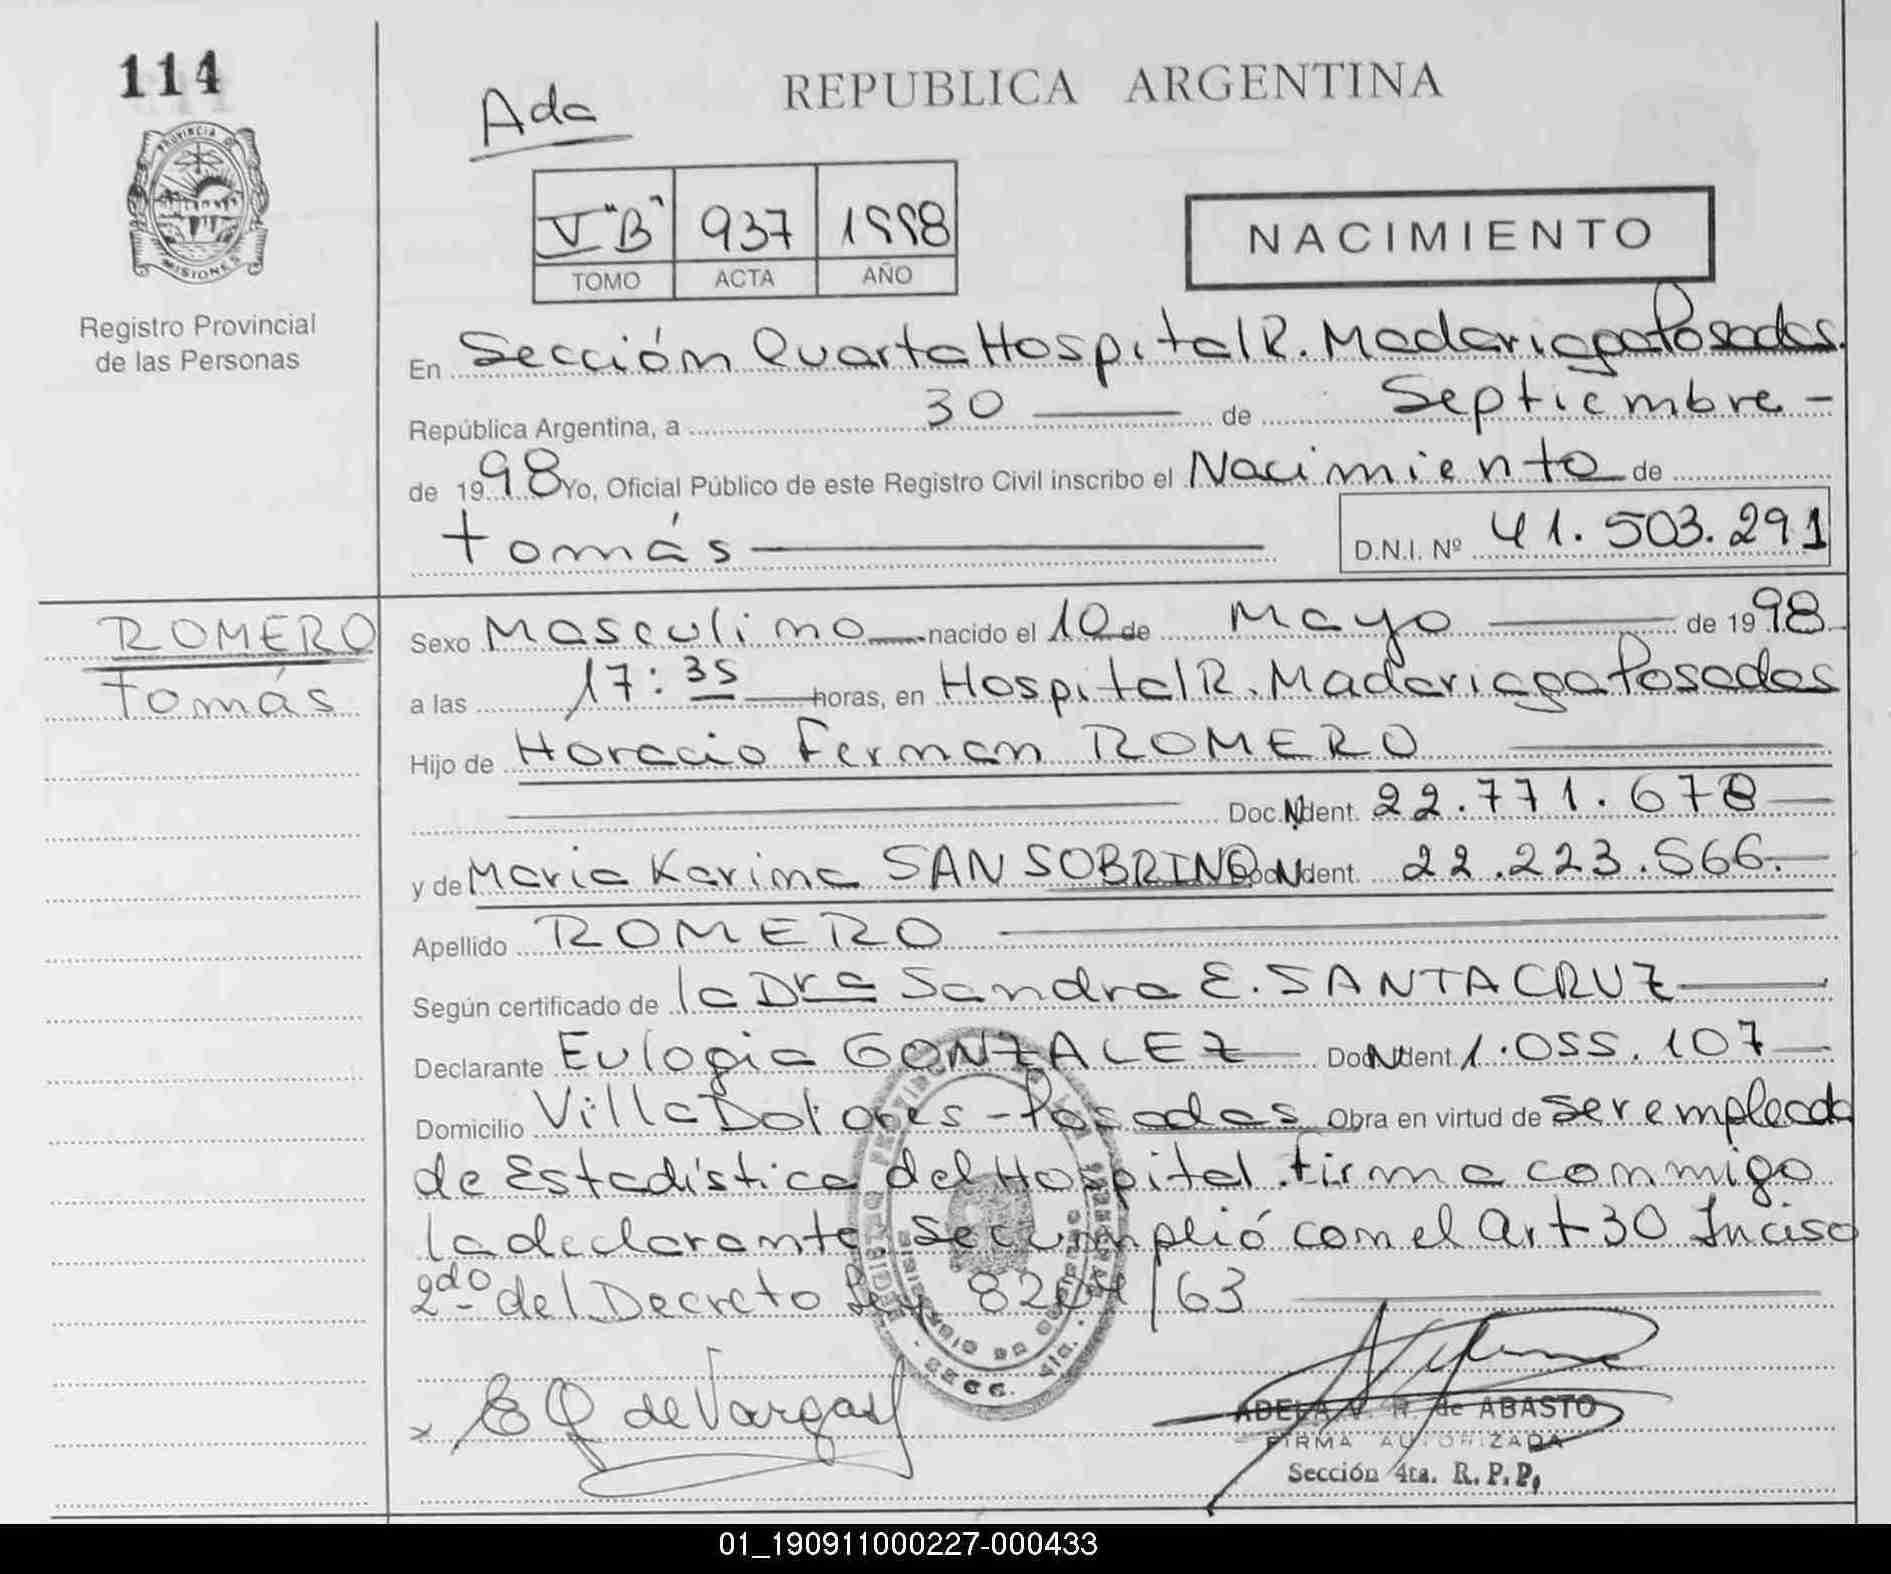 114
Ada
REPUBLICA ARGENTINA
PROVINCIA DE
MISIONES
V "B" 937 1998
TOMO ACTA AÑO
NACIMIENTO
Registro Provincial
de las Personas
En Sección Quarta Hospital R. Madariaga Posadas.
República Argentina, a 30 de Septiembre
de 1998 Yo, Oficial Público de este Registro Civil inscribo el Nacimiento de
tomás
D.N.I. Nº 41.503.291
ROMERO
tomás
Sexo Masculino nacido el 10 de Mayo de 1998
a las 17:35 horas, en Hospital R. Madariaga Posadas
Hijo de Horacio Fernan ROMERO
Doc. Ident. 22.771.678
y de Maria Karina SAN SOBRINO Doc. Ident. 22.223.566.
Apellido ROMERO
Según certificado de la Dra Sandra E. SANTACRUZ
Declarante Eulogia GONZALEZ Doc. Ident. 1.055.107
Domicilio Villa Dolores - Posadas Obra en virtud de ser empleada
de Estadística del Hospital. firma conmigo
la declarante Se cumplió con el Art 30 Inciso
2do del Decreto Ley 8204/63
E G de Vargas
ADELA V. R. de ABASTO
FIRMA AUTORIZADA
Sección 4ta. R.P.P.
01_190911000227-000433